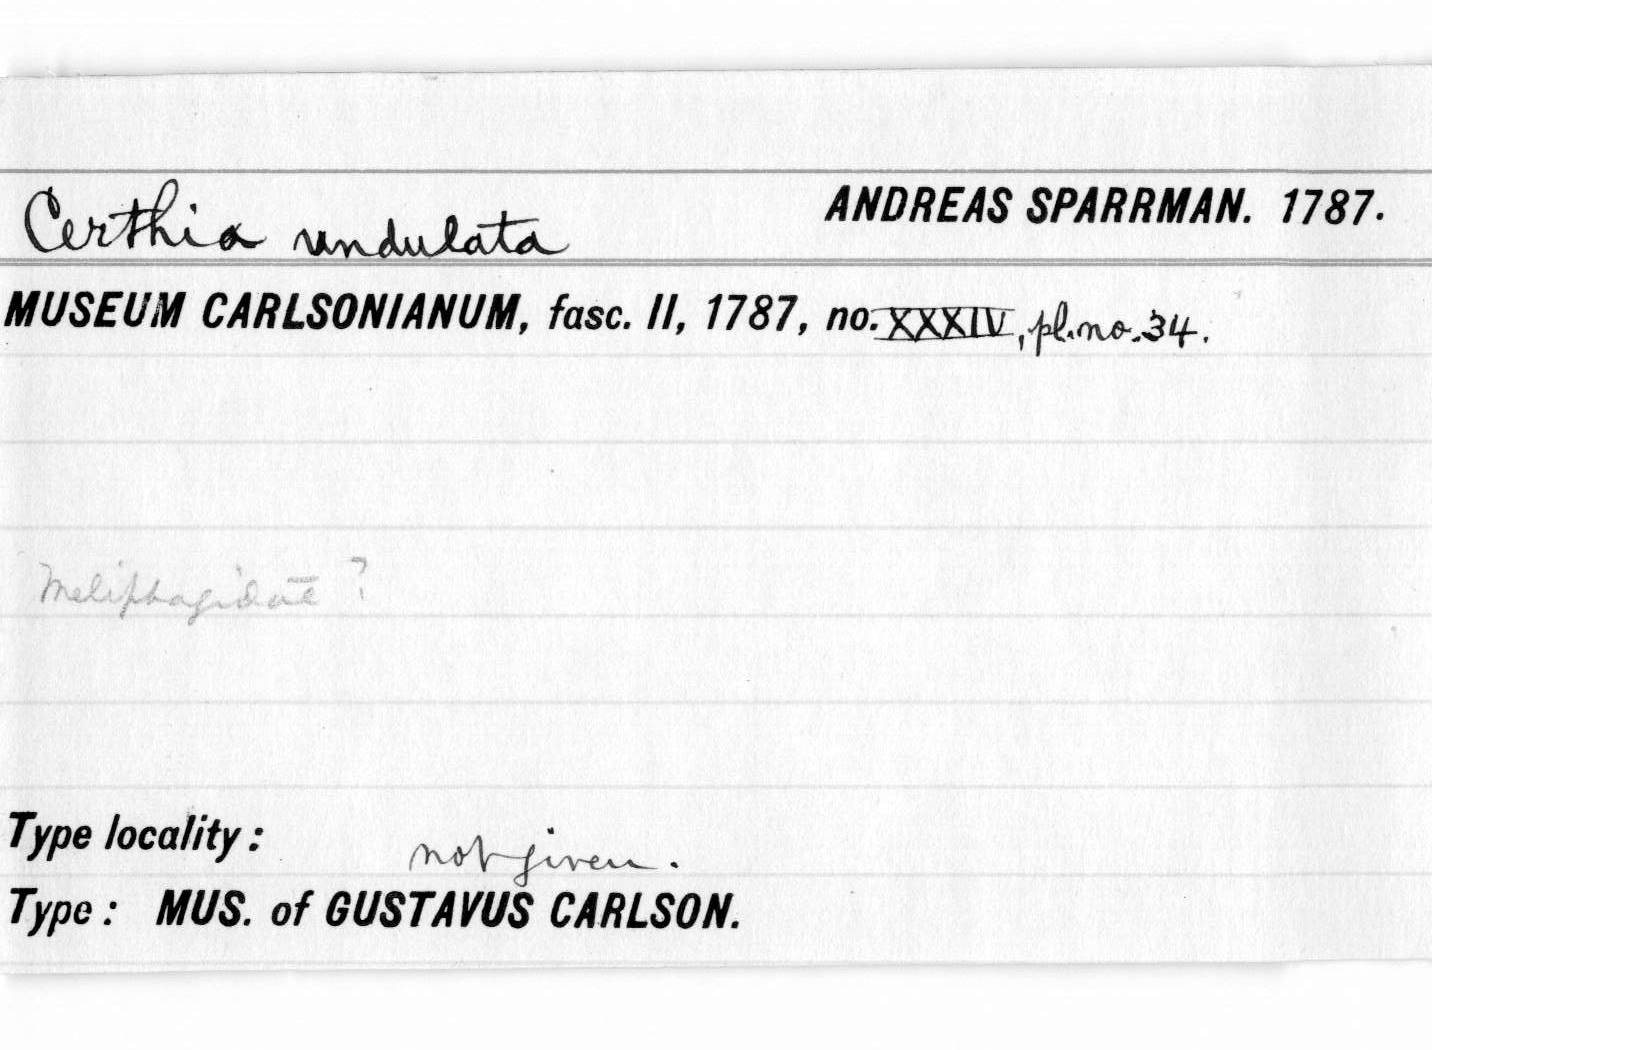 Certhia undulata ANDREAS SPARRMAN. 1787.
MUSEUM CARLSONIANUM, fasc. II, 1787, no. XXXIV, pl. no. 34.
Meliphagidae ?
Type locality: not given.
Type: MUS. of GUSTAVUS CARLSON.